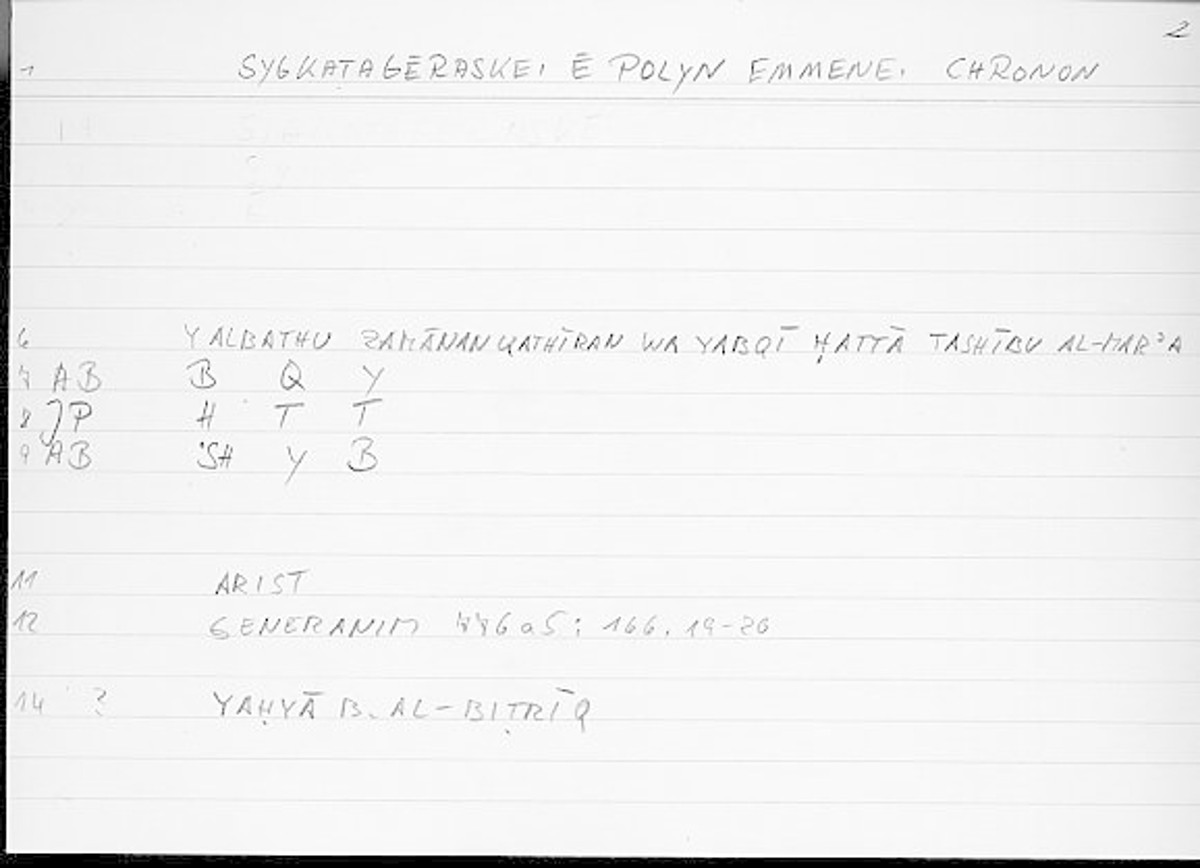 2
1 SYGKATAGĒRASKEI Ē POLYN EMMENEI CHRONON
6 YALBATHU ZAMĀNAN KATHĪRAN WA YABQĪ ḤATTĀ TASHĪBU AL-MARʾA
7 AB B Q Y
8 JP H T T
9 AB SH Y B
11 ARIST
12 GENERANIM 776a5; 166.19-20
14 ? YAḤYĀ B. AL-BIṬRĪQ